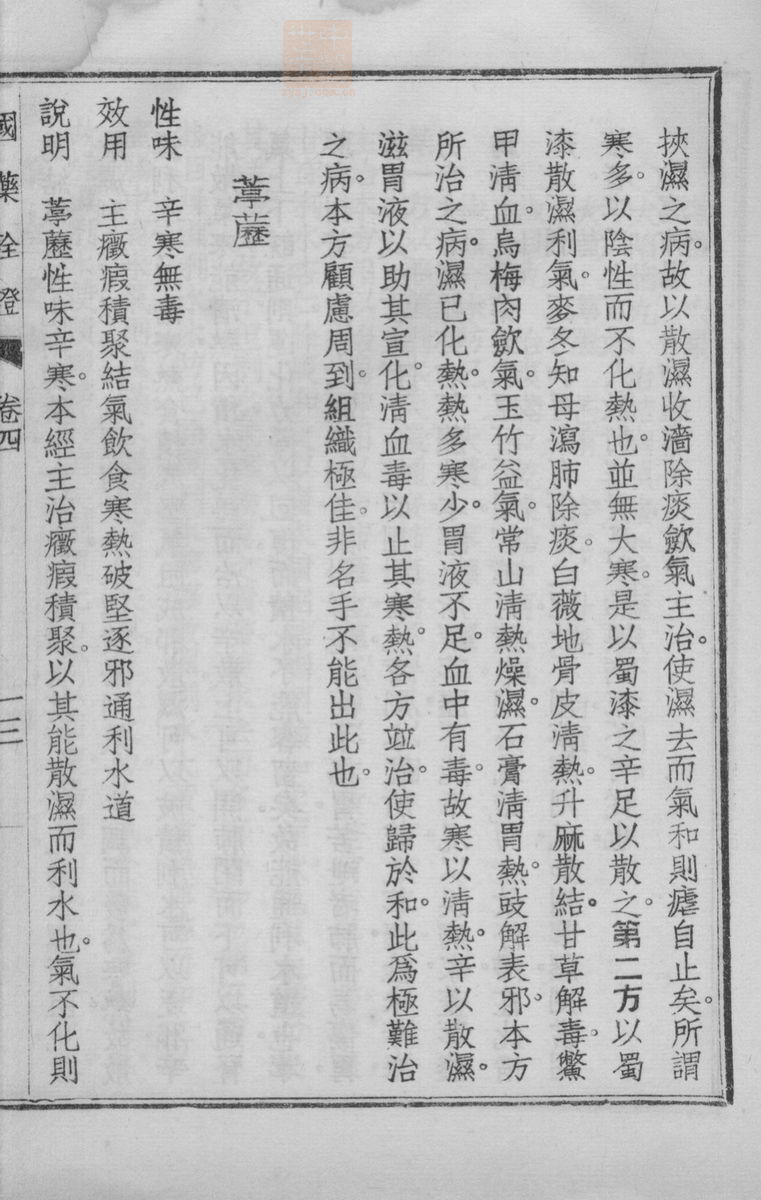 挾濕之病。故以散濕收濇除痰歛氣主治。使濕去而氣和則瘧自止矣。所謂
寒多。以陰性而不化熱也。並無大寒。是以蜀漆之辛足以散之。第二方以蜀
漆散濕利氣。麥冬知母瀉肺除痰。白薇地骨皮淸熱。升麻散結。甘草解毒。鱉
甲淸血。烏梅肉歛氣。玉竹益氣。常山淸熱燥濕。石膏淸胃熱。豉解表邪。本方
所治之病。濕已化熱。熱多寒少。胃液不足。血中有毒。故寒以淸熱。辛以散濕。
滋胃液以助其宣化。淸血毒以止其寒熱。各方竝治。使歸於和。此爲極難治
之病。本方顧慮周到。組織極佳。非名手不能出此也。
葶藶
性味　辛寒無毒
效用　主癥瘕積聚結氣飲食寒熱破堅逐邪通利水道
說明　葶藶性味辛寒。本經主治癥瘕積聚。以其能散濕而利水也。氣不化則
國藥詮證　卷四　一三